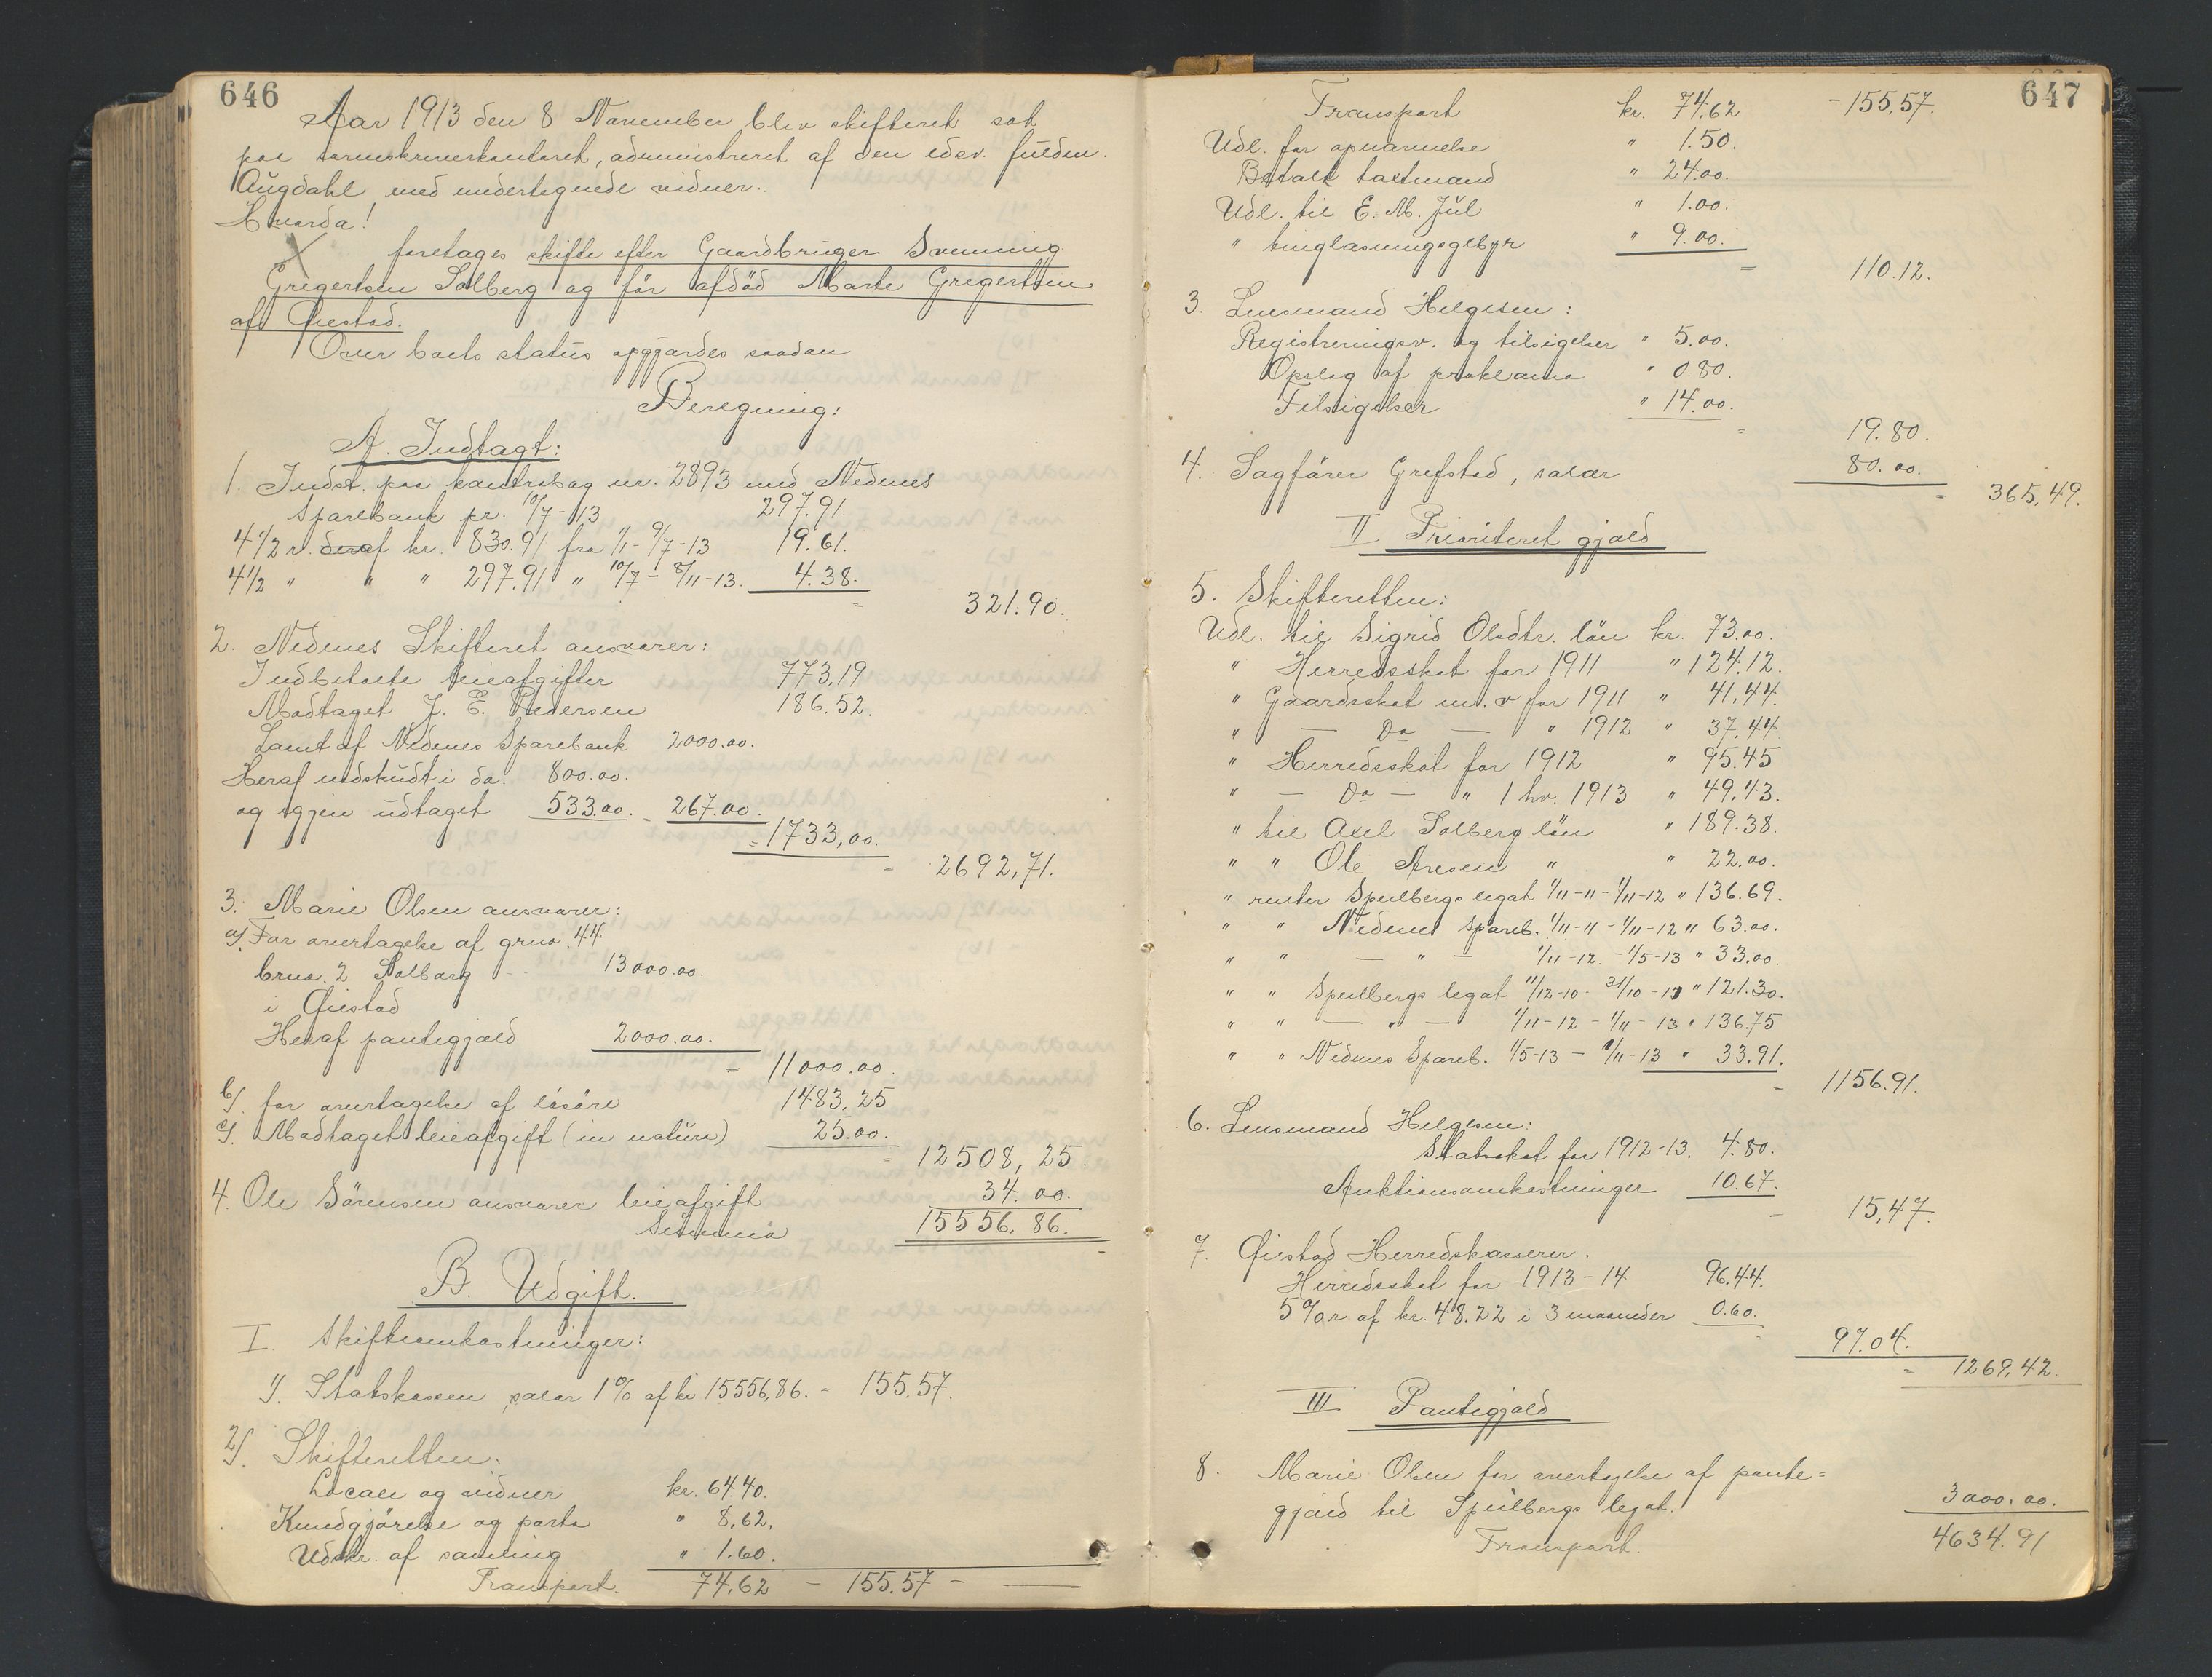 646
Aar 1913 den 8 November blev skifteret sat
paa sorenskriverkontoret, administreret af den edsv. fuldm.
Augdahl, med undertegnede vidner.
Hvorda!
foretages skifte efter Gaardbruger Svenning
Gregertsen Solberg og før afdød Marte Gregertsen
af Øiestad.
Over boets status opgjordes saadan
Beregning:
A. Indtægt:
1. Indst. paa kontrabog nr. 2893 med Nedenes
Sparebank pr. 10/7-13 297.91.
4 1/2 r. deraf kr. 830.91 fra 1/1- 9/7-13 19.61.
4 1/2 " " " 297.91 " 10/7 - 8/11-13. 4.38.
- 321.90.
2. Nedenes Skifteret ansvarer:
Indbetalte leieafgifter 773,19
Modtaget J. E. Pedersen 186.52.
Laant af Nedenes Sparebank 2000.00.
Heraf indskudt i do. 800.00.
og igjen udtaget 533.00. - 267.00.
= 1733,00.
- 2692,71.
3. Marie Olsen ansvarer:
a). For overtagelse af grno. 44
brno. 2 Solberg - - 13000.00.
i Øiestad
Heraf pantegjæld 2000.00.
- 11000.00.
b). for overtagelse af løsøre 1483,25
c). Modtaget leieafgift (in natura) 25.00.
- 12508,25.
4. Ole Sørensen ansvarer leieafgift 34.00.
Summa 15556.86.
B. Udgift.
I. Skifteomkostninger:
1). Statskassen, salær 1% af kr 15556,86. - 155,57.
2). Skifteretten:
Locale og vidner kr. 64.40.
Kundgjørelse og porto " 8,62.
Udskr. af samling " 1.60.
Transport. 74,62 - 155.57 -
647
Transport kr. 74.62 - 155,57.
Udl. for opvarmelse " 1.50.
Betalt taxtmænd " 24.00.
Udl. til E. M. Jul " 1.00.
" tinglæsningsgebyr " 9.00.
= 110.12.
3. Lensmand Helgesen:
Registreringsv. og tilsigelser " 5.00.
Opslag af proklama " 0.80.
Tilsigelser " 14.00.
= 19.80.
4. Sagfører Grefstad, salær 80.00.
- 365,49.
II Prioriteret gjæld
5. Skifteretten:
Udl. til Sigrid Olsdtr. løn kr. 73.00.
" Herredsskat for 1911 " 124.12.
" Gaardsskat m.v for 1911 " 41,44.
" — Do — " 1912 " 37,44
" Herredsskat for 1912 " 95.45
" — Do — " 1 hv. 1913 " 49,43.
" til Axel Solberg løn " 189.38.
" " Ole Aresen " " 22.00.
" renter Speilbergs legat 1/11-11 - 1/11-12 " 136.69.
" " Nedenes Spareb. 1/11-11 - 1/11-12 " 63.00.
" " — " — 1/11-12. - 1/5-13 " 33.00.
" " Speilbergs legat 11/12-10 - 31/10-11 " 121.30.
" " — " — 1/11-12 - 1/11-13 " 136.75
" " Nedenes Spareb. 1/5-13 - 1/11-13 " 33.91.
- 1156.91.
6. Lensmand Helgesen:
Statsskat for 1912-13. 4.80.
Auktionsomkostninger 10.67.
- 15,47.
7. Øiestad Herredskasserer.
Herredsskat for 1913-14 96.44.
5% r. af kr. 48.22 i 3 maaneder 0.60.
- 97.04.
- 1269,42.
III Pantegjæld
8. Marie Olsen for overtagelse af pante=
gjæld til Speilbergs legat. 3000.00.
Transport. 4634.91